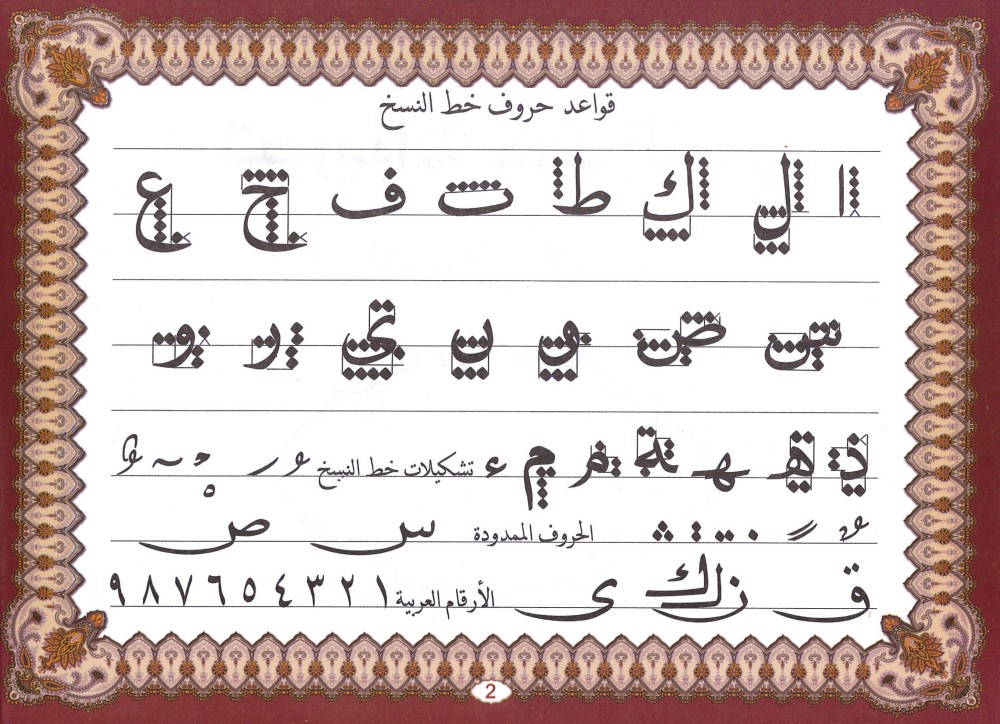 قواعد حروف خط النسخ
ا ل ك ط ت ف ح ع
س ص ن ر و
د ه م ء تشكيلات خط النسخ
الحروف الممدودة س ص
ق ز ك ى الأرقام العربية ١ ٢ ٣ ٤ ٥ ٦ ٧ ٨ ٩
2